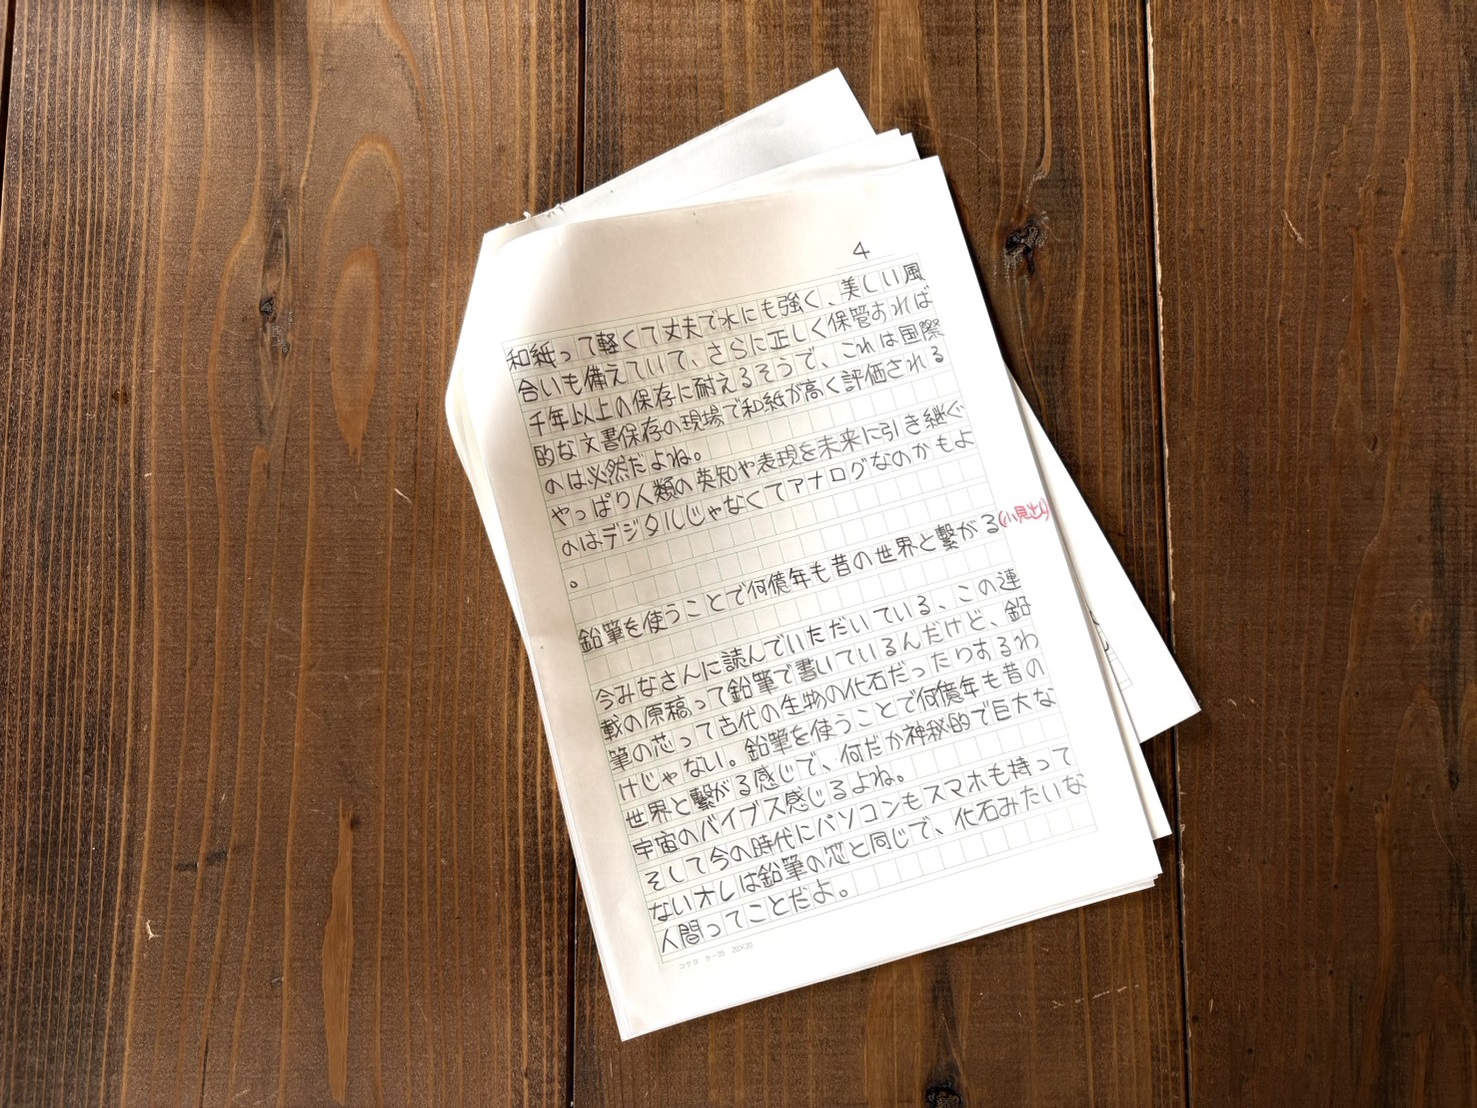 4
和紙って軽くて丈夫で水にも強く、美しい風
合いも備えていて、さらに正しく保管すれば
千年以上の保存に耐えるそうで、これは国際
的な文書保存の現場で和紙が高く評価される
のは必然だよね。
やっぱり人類の英知や表現を未来に引き継ぐ
のはデジタルじゃなくてアナログなのかもよ
。
鉛筆を使うことで何億年も昔の世界と繋がる(小見出し)
今みなさんに読んでいただいている、この連
載の原稿って鉛筆で書いているんだけど、鉛
筆の芯って古代の生物の化石だったりするわ
けじゃない。鉛筆を使うことで何億年も昔の
世界と繋がる感じで、何だか神秘的で巨大な
宇宙のバイブス感じるよね。
そして今の時代にパソコンもスマホも持って
ないオレは鉛筆の芯と同じで、化石みたいな
人間ってことだよ。
コクヨ ケー35 20×20